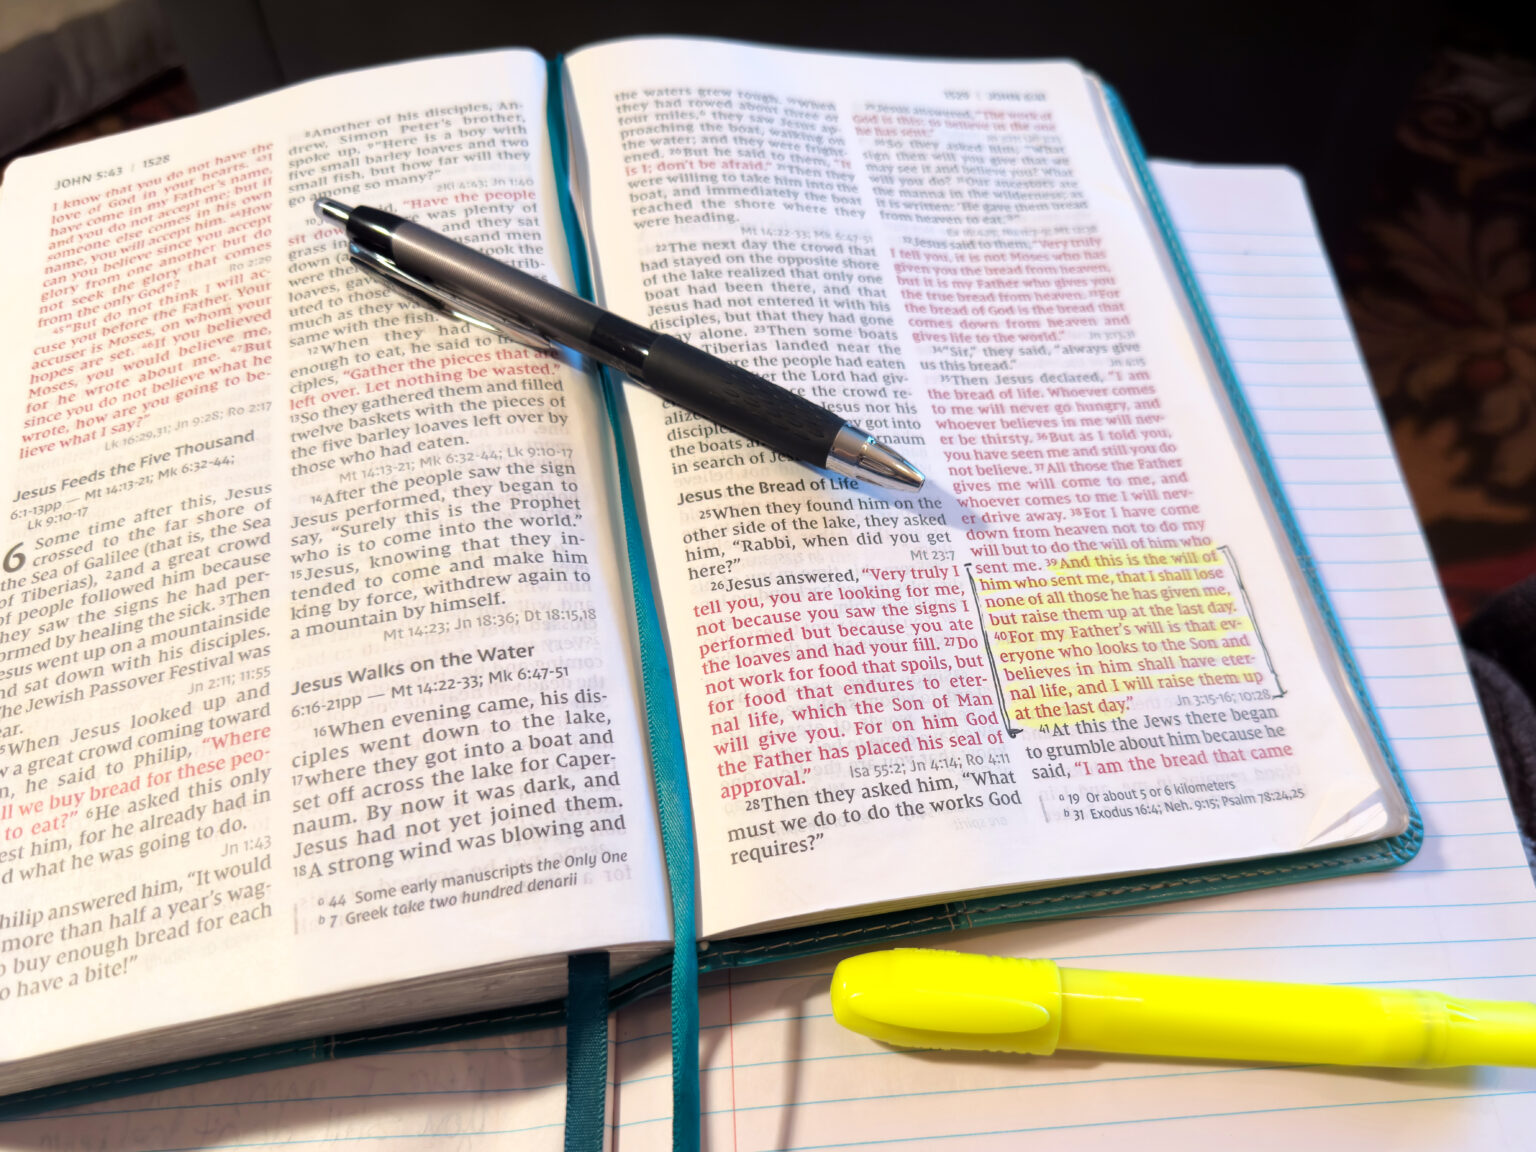 JOHN 5:43 | 1528
I know that you do not have the
love of God in your hearts. 43I
have come in my Father's name,
and you do not accept me; but if
someone else comes in his own
name, you will accept him. 44How
can you believe since you accept
glory from one another but do
not seek the glory that comes
from the only God?
Ro 2:29
45"But do not think I will ac-
cuse you before the Father. Your
accuser is Moses, on whom your
hopes are set. 46If you believed
Moses, you would believe me,
for he wrote about me. 47But
since you do not believe what he
wrote, how are you going to be-
lieve what I say?"
Lk 16:29,31; Jn 9:28; Ro 2:17
Jesus Feeds the Five Thousand
6:1-13pp — Mt 14:13-21; Mk 6:32-44;
Lk 9:10-17
6 Some time after this, Jesus
crossed to the far shore of
the Sea of Galilee (that is, the Sea
of Tiberias), 2and a great crowd
of people followed him because
they saw the signs he had per-
ormed by healing the sick. 3Then
esus went up on a mountainside
nd sat down with his disciples.
he Jewish Passover Festival was
ear.
Jn 2:11; 11:55
5When Jesus looked up and
w a great crowd coming toward
m, he said to Philip, "Where
all we buy bread for these peo-
to eat?" 6He asked this only
est him, for he already had in
d what he was going to do.
Jn 1:43
hilip answered him, "It would
more than half a year's wag-
o buy enough bread for each
o have a bite!"
8Another of his disciples, An-
drew, Simon Peter's brother,
spoke up, 9"Here is a boy with
five small barley loaves and two
small fish, but how far will they
go among so many?"
2Ki 4:43; Jn 1:40
10 said, "Have the people
sit dow was plenty of
grass in and they sat
down (a usand men
were the took the
loaves, gav strib-
uted to those
much as they wa
same with the fish.
12When they had
enough to eat, he said to
ciples, "Gather the pieces that are
left over. Let nothing be wasted."
13So they gathered them and filled
twelve baskets with the pieces of
the five barley loaves left over by
those who had eaten.
Mt 14:13-21; Mk 6:32-44; Lk 9:10-17
14After the people saw the sign
Jesus performed, they began to
say, "Surely this is the Prophet
who is to come into the world."
15Jesus, knowing that they in-
tended to come and make him
king by force, withdrew again to
a mountain by himself.
Mt 14:23; Jn 18:36; Dt 18:15,18
Jesus Walks on the Water
6:16-21pp — Mt 14:22-33; Mk 6:47-51
16When evening came, his dis-
ciples went down to the lake,
17where they got into a boat and
set off across the lake for Caper-
naum. By now it was dark, and
Jesus had not yet joined them.
18A strong wind was blowing and
a 44 Some early manuscripts the Only One
b 7 Greek take two hundred denarii
1529 | JOHN 6:41
the waters grew rough. 19When
they had rowed about three or
four miles,a they saw Jesus ap-
proaching the boat, walking on
the water; and they were fright-
ened. 20But he said to them, "It
is I; don't be afraid." 21Then they
were willing to take him into the
boat, and immediately the boat
reached the shore where they
were heading.
Mt 14:22-33; Mk 6:47-51
22The next day the crowd that
had stayed on the opposite shore
of the lake realized that only one
boat had been there, and that
Jesus had not entered it with his
disciples, but that they had gone
away alone. 23Then some boats
Tiberias landed near the
re the people had eaten
ter the Lord had giv-
ce the crowd re-
alize Jesus nor his
disciple y got into
the boats a rnaum
in search of Jes
Jesus the Bread of Life
25When they found him on the
other side of the lake, they asked
him, "Rabbi, when did you get
here?"
Mt 23:7
26Jesus answered, "Very truly I
tell you, you are looking for me,
not because you saw the signs I
performed but because you ate
the loaves and had your fill. 27Do
not work for food that spoils, but
for food that endures to eter-
nal life, which the Son of Man
will give you. For on him God
the Father has placed his seal of
approval."
Isa 55:2; Jn 4:14; Ro 4:11
28Then they asked him, "What
must we do to do the works God
requires?"
29Jesus answered, "The work of
God is this: to believe in the one
he has sent."
30So they asked him, "What
sign then will you give that we
may see it and believe you? What
will you do? 31Our ancestors ate
the manna in the wilderness; as
it is written: 'He gave them bread
from heaven to eat.'b"
32Jesus said to them, "Very truly
I tell you, it is not Moses who has
given you the bread from heaven,
but it is my Father who gives you
the true bread from heaven. 33For
the bread of God is the bread that
comes down from heaven and
gives life to the world."
34"Sir," they said, "always give
us this bread."
Jn 4:15
35Then Jesus declared, "I am
the bread of life. Whoever comes
to me will never go hungry, and
whoever believes in me will nev-
er be thirsty. 36But as I told you,
you have seen me and still you do
not believe. 37All those the Father
gives me will come to me, and
whoever comes to me I will nev-
er drive away. 38For I have come
down from heaven not to do my
will but to do the will of him who
sent me. 39And this is the will of
him who sent me, that I shall lose
none of all those he has given me,
but raise them up at the last day.
40For my Father's will is that ev-
eryone who looks to the Son and
believes in him shall have eter-
nal life, and I will raise them up
at the last day."
Jn 3:15-16; 10:28
41At this the Jews there began
to grumble about him because he
said, "I am the bread that came
a 19 Or about 5 or 6 kilometers
b 31 Exodus 16:4; Neh. 9:15; Psalm 78:24,25